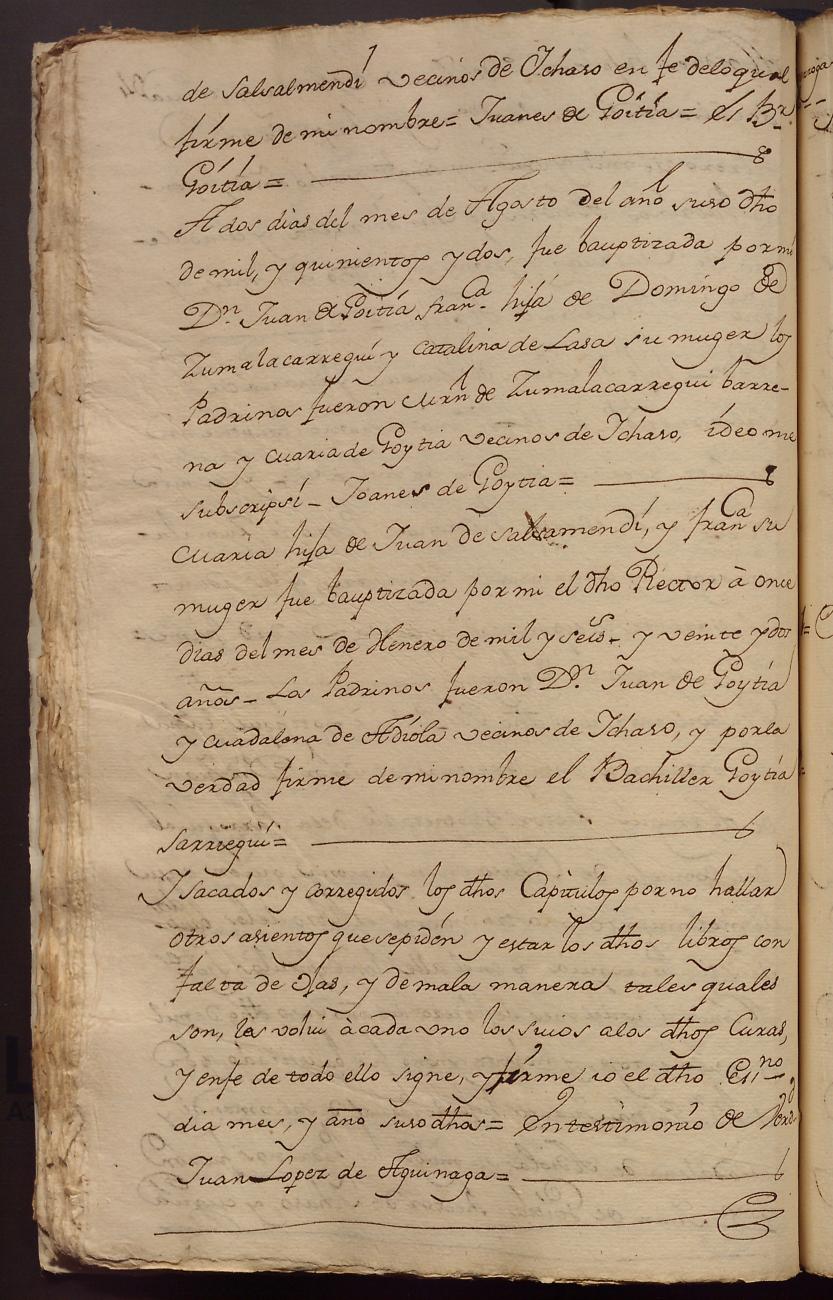 de salsalmendi vecinos de Ichaso en fe delo qual
firme de mi nombre= Juanes de Goitia= El Br
Goitia=
A dos dias del mes de Agosto del año suso dho
de mil, y quinientos y dos, fue bauptizada por mi
Dn. Juan de Goitia franca hija de Domingo de
Zumalacarregui y Catalina de Lasa su muger los
Padrinos fueron Mrn de Zumalacarregui barre-
na y Maria de Goytia vecinos de Ichaso, ideo me
subscripsi - Joanes de Goytia=
Maria hija de Juan de salsamendi, y franca su
muger fue bauptizada por mi el dho Rector à once
dias del mes de Henero de mil y seis- y veinte y dos
años - Los Padrinos fueron Dn. Juan de Goytia
y Madalena de Adiola vecinos de Ichaso, y por la
verdad firme de mi nombre el Bachiller Goytia
sarregui=
Y sacados y corregidos los dhos Capitulos por no hallar
otros asientos que se pidén y estar los dhos libros con
falta de ojas, y de mala manera tales quales
son, les volui à cada uno los suios a los dhos Curas,
y en fe de todo ello signe, y firme io el dho Essno
dia mes, y año suso dhos= En testimonio de Verd
Juan Lopez de Aguinaga=